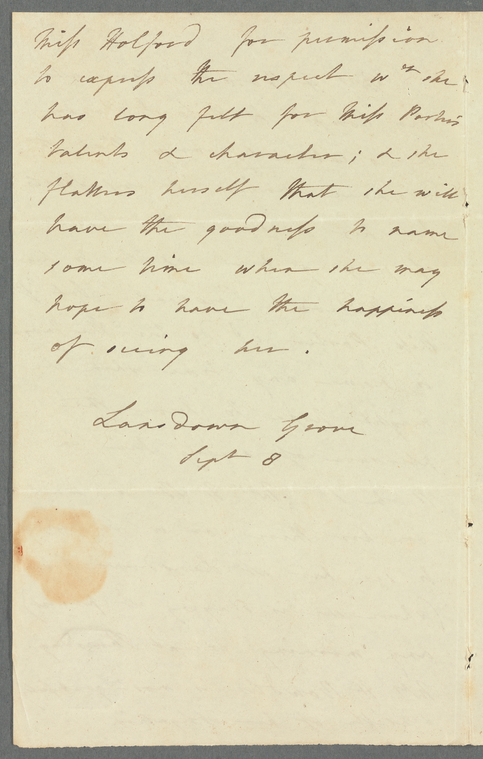 Miss Holford for permission
to express the respect wch she
has long felt for Miss Porter's
talents & character; & she
flatters herself that she will
have the goodness to name
some time when she may
hope to have the happiness
of seeing her.
Lansdown Grove
Sept 8